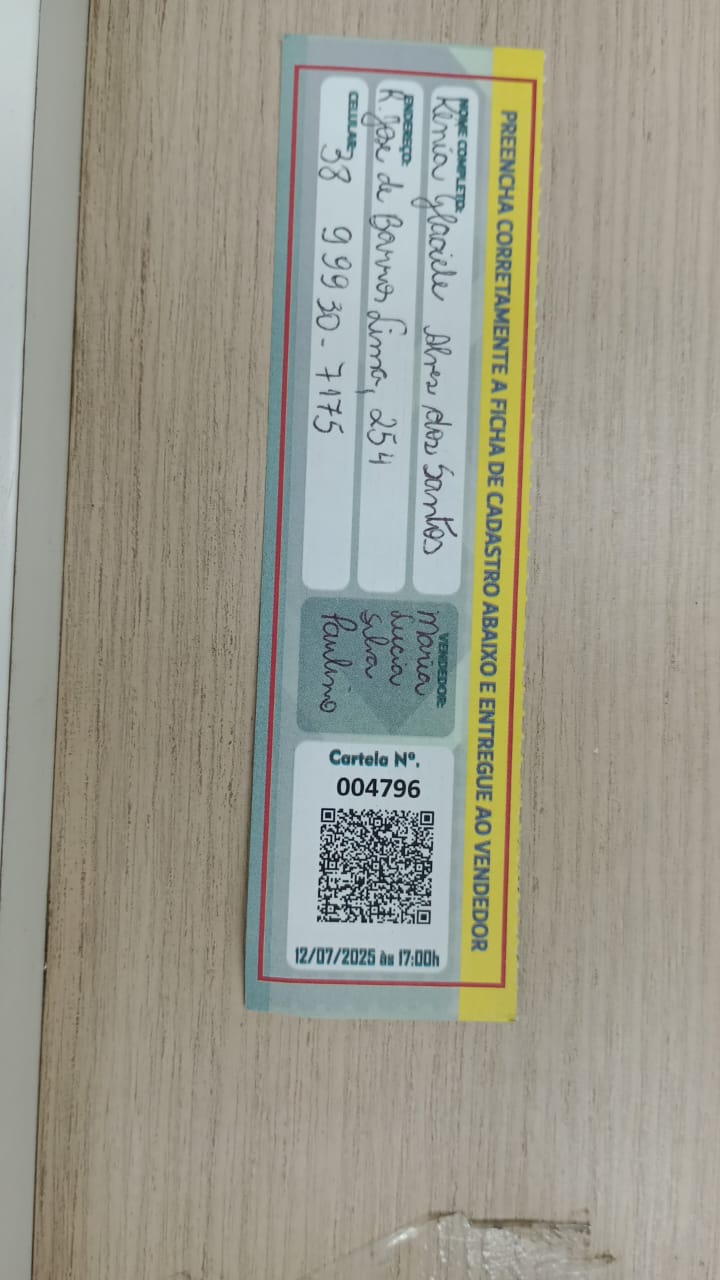 PREENCHA CORRETAMENTE A FICHA DE CADASTRO ABAIXO E ENTREGUE AO VENDEDOR
NOME COMPLETO:
Kênia Glaciele Alves dos Santos
ENDEREÇO:
R. José de Barros Lima, 254
CELULAR:
38 99930-7175
VENDEDOR:
Maria
Lucia
Silva
Paulino
Cartela Nº.
004796
12/07/2025 às 17:00h